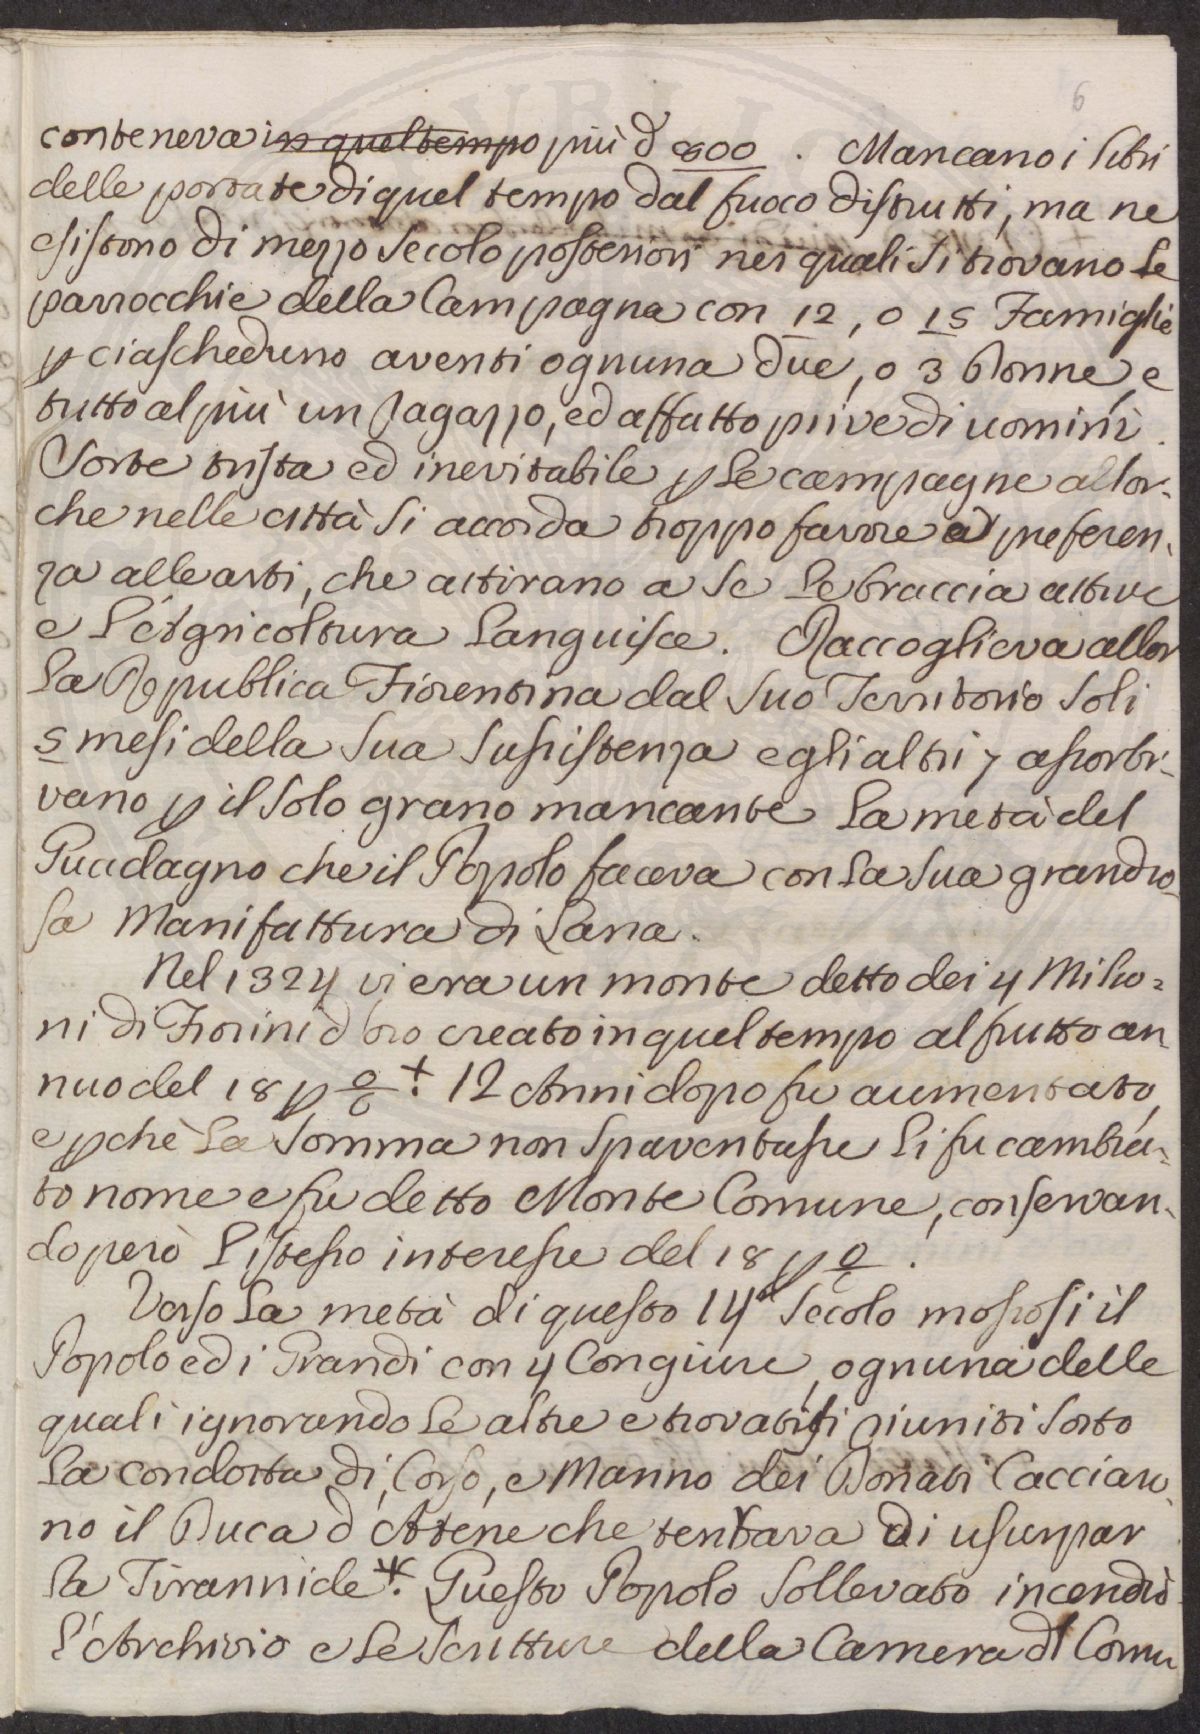 6
conteneva in quel tempo più d 800. Mancano i libri
delle portate di quel tempo dal fuoco distrutti, ma ne
esistono di mezzo secolo posteriori nei quali si trovano le
parrocchie della Campagna con 12, o 15 Famiglie
p ciascheduno aventi ognuna due, o 3 Donne, e
tutto al più un Ragazzo, ed affatto prive di uomini.
Sorte trista ed inevitabile p le campagne allor-
che nelle città si accorda troppo favore a preferen-
za alle arti, che attirano a se le braccia attive
e l'Agricoltura languisce. Raccoglieva allor
la Republica Fiorentina dal suo Territorio soli
5 mesi della sua sussistenza e gli altri 7 assorbi-
vano p il solo grano mancante la metà del
Guadagno che il Popolo faceva con la sua grandio-
sa Manifattura di Lana.
Nel 1324 vi era un monte detto dei 4 Milio-
ni di Fiorini d'oro creato in quel tempo al frutto an
nuo del 18 p %.+ 12 Anni dopo fu aumentato,
e pchè la somma non spaventasse li fu cambia-
to nome e fu detto Monte Comune, conservan-
do però l'istesso interesse del 18 p %.
Verso la metà di questo 14° secolo mossosi il
Popolo ed i Grandi con 4 Congiure, ognuna delle
quali ignorando le altre e trovatisi riuniti sotto
la condotta di Corso, e Manno dei Donati Cacciaro-
no il Duca d Atene che tentava di usurpar
la Tirannide*. Questo Popolo sollevato incendiò
l'Archivio e le scritture della Camera di Comu